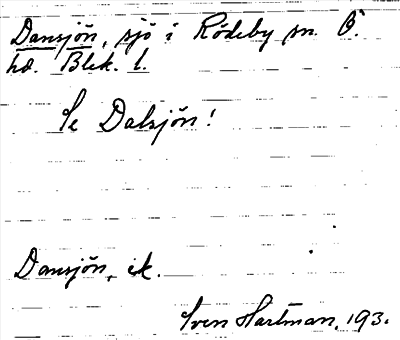 Dansjön, sjö i Rödeby sn. Ö.
hd. Blek. l.
Se Dalsjön!
Dansjön, ik.
Sven Hartman, 193.